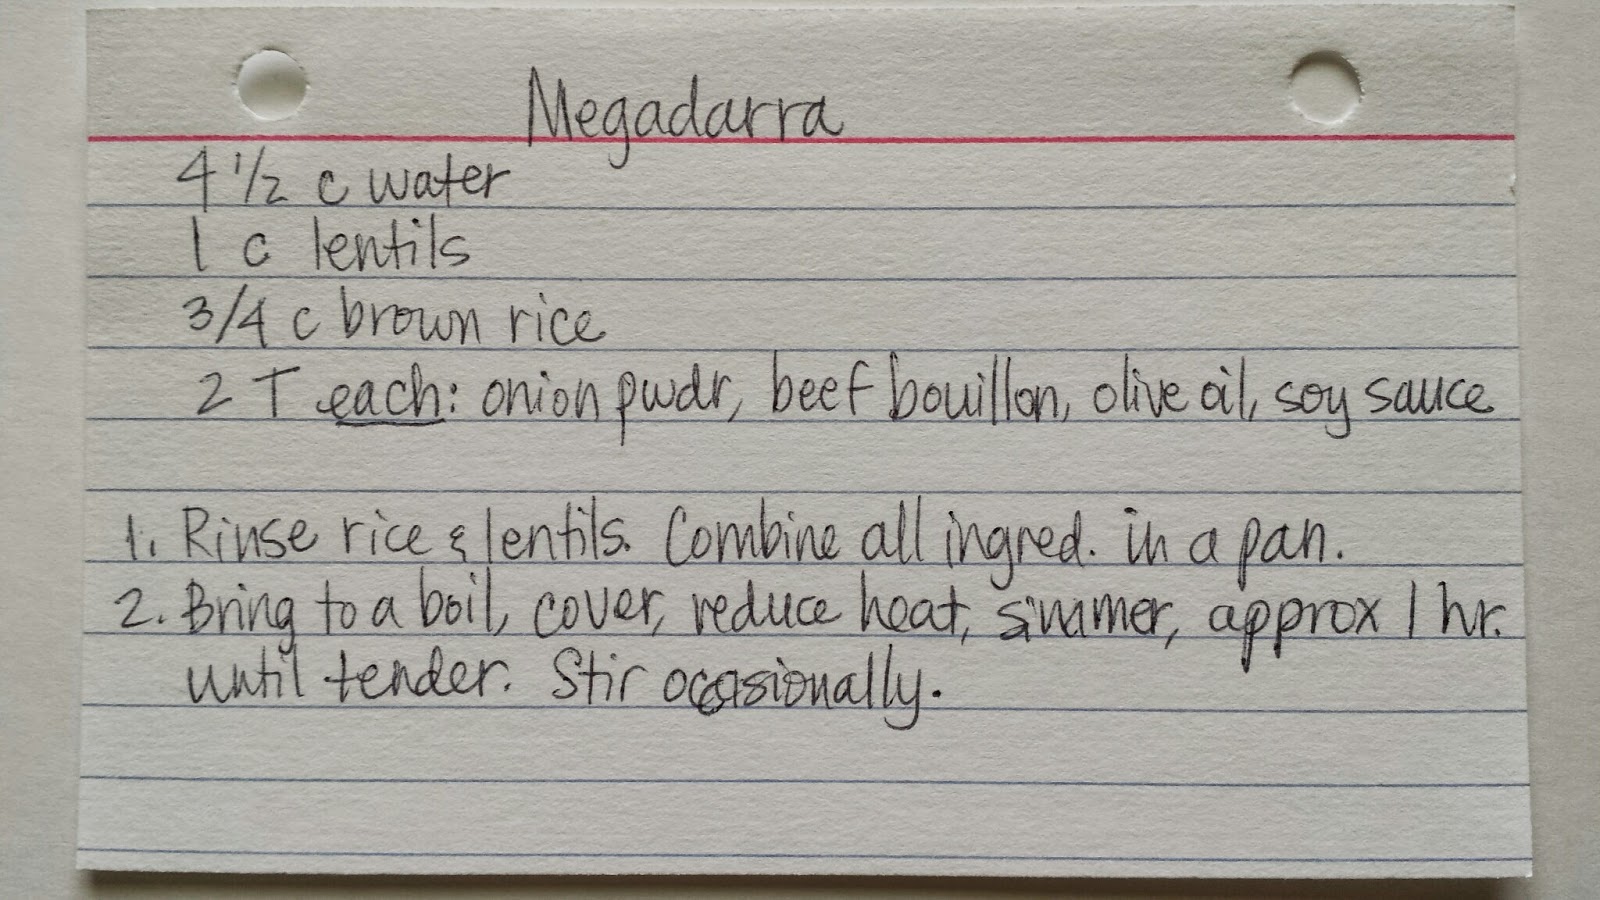 Megadarra
4 1/2 c water
1 c lentils
3/4 c brown rice
2 T each: onion pwdr, beef bouillon, olive oil, soy sauce
1. Rinse rice & lentils. Combine all ingred. in a pan.
2. Bring to a boil, cover, reduce heat, simmer, approx 1 hr.
until tender. Stir occasionally.